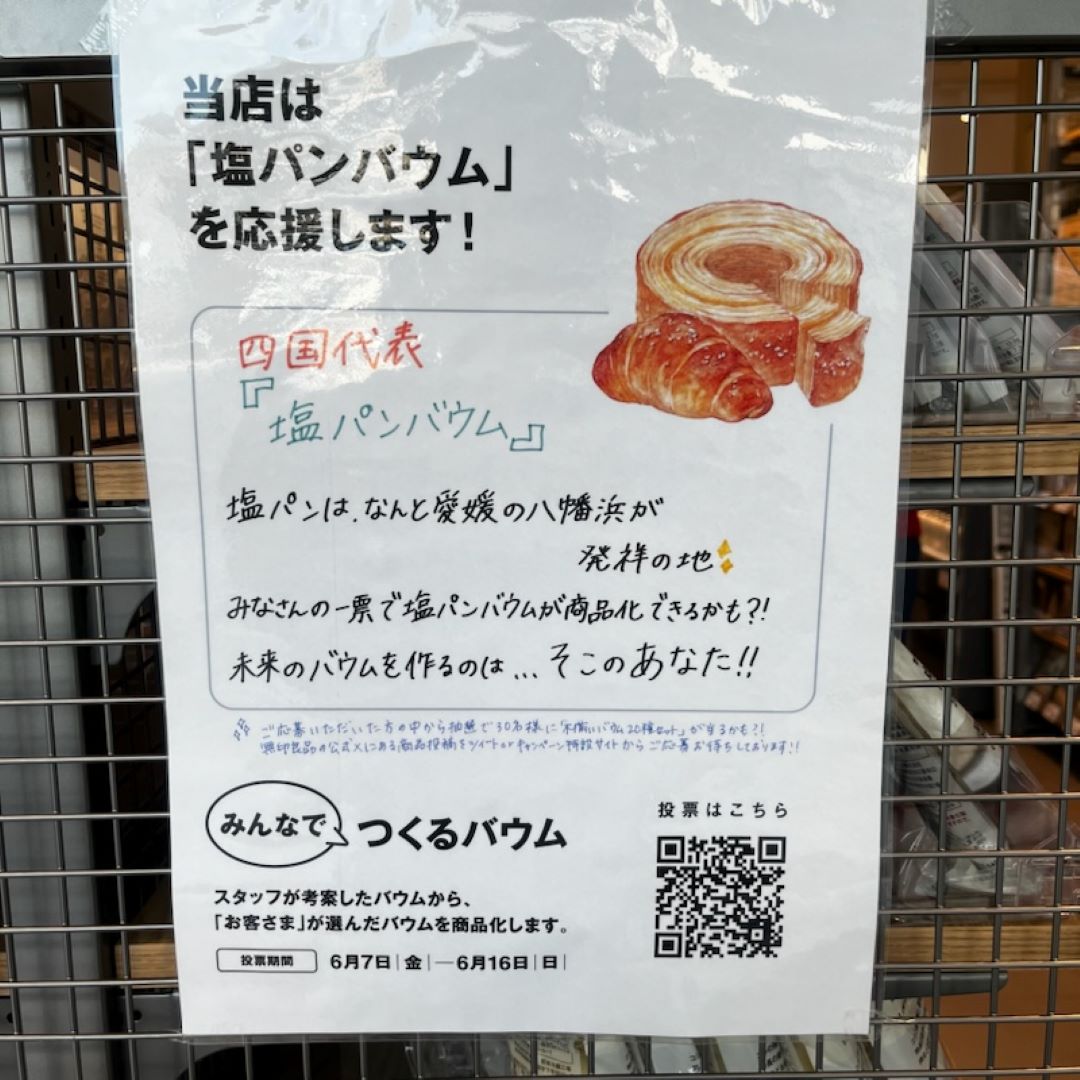 当店は
「塩パンバウム」
を応援します!
四国代表
『塩パンバウム』
塩パンは、なんと愛媛の八幡浜が
発祥の地
みなさんの一票で塩パンバウムが商品化できるかも?!
未来のバウムを作るのは...そこのあなた!!
ご応募いただいた方の中から抽選で30名様に「不揃いバウム20種セット」が当るかも?!
無印良品の公式Xにある商品投稿をツイートorキャンペーン特設サイトからご応募お待ちしております!!
みんなで つくるバウム
スタッフが考案したバウムから、
「お客さま」が選んだバウムを商品化します。
投票期間 6月7日|金|—6月16日|日|
投票はこちら